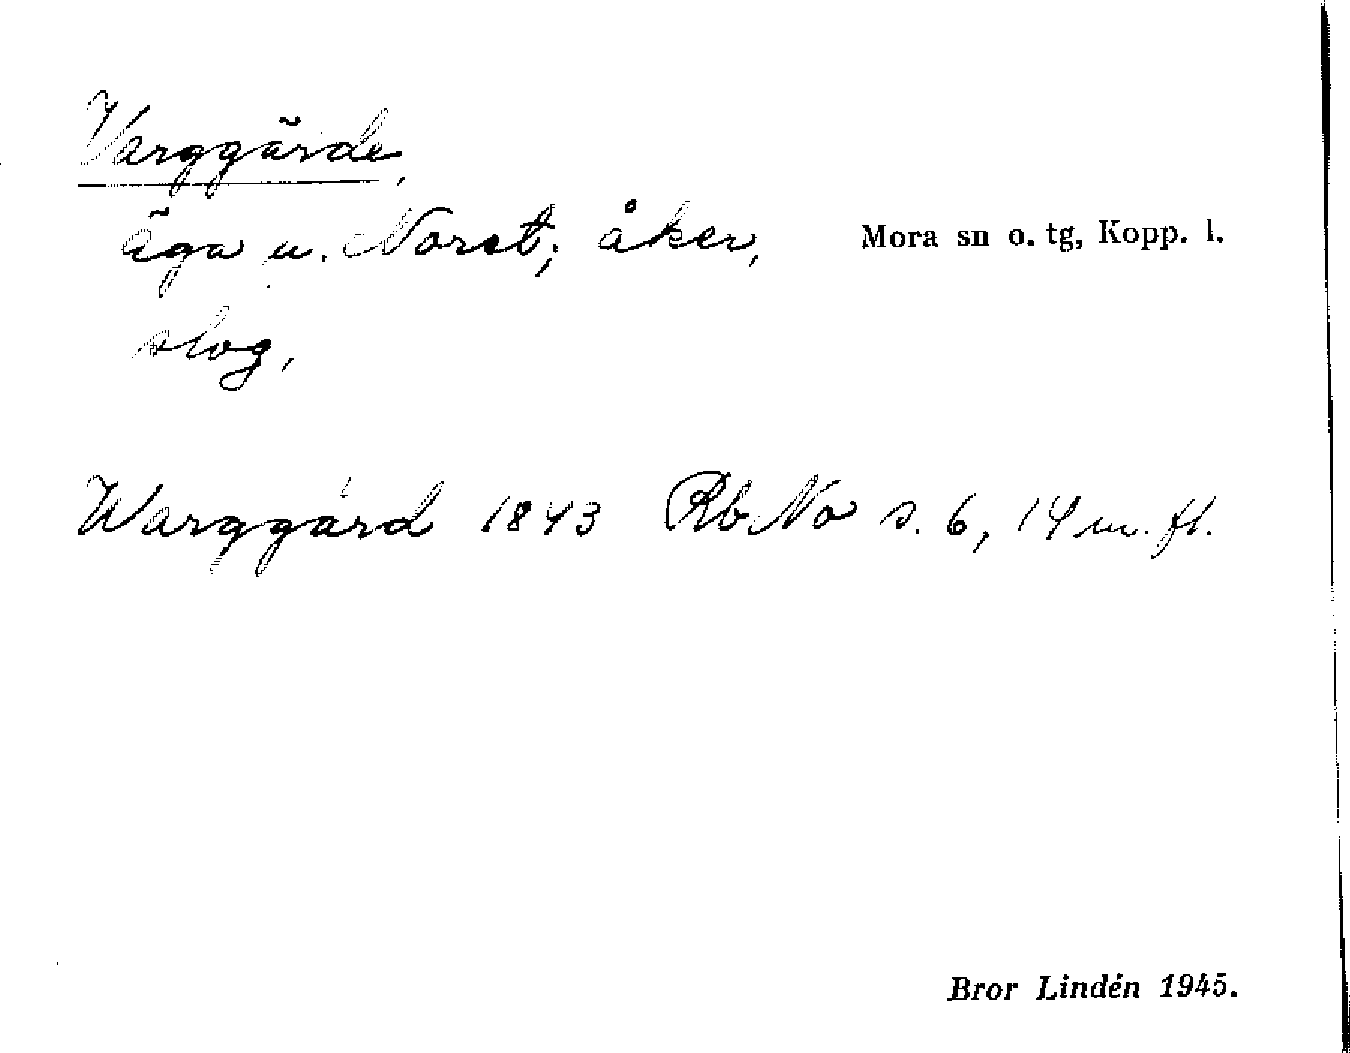 Varggärde,
äga u. Noret; åker, Mora sn o. tg, Kopp. l.
slog,
Warggärd 1843 Rb No s. 6, 14 m. fl.
Bror Lindén 1945.